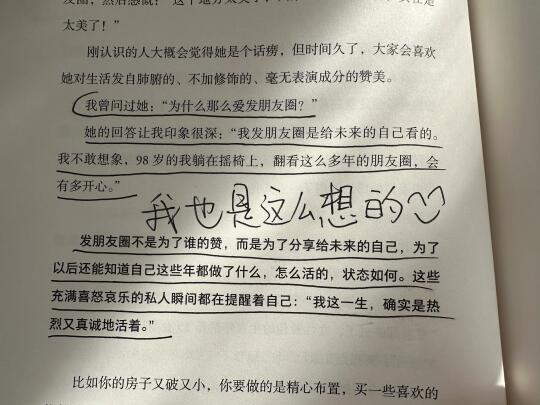 太美了！”
刚认识的人大概会觉得她是个话痨，但时间久了，大家会喜欢
她对生活发自肺腑的、不加修饰的、毫无表演成分的赞美。
我曾问过她：“为什么那么爱发朋友圈？”
她的回答让我印象很深：“我发朋友圈是给未来的自己看的。
我不敢想象，98 岁的我躺在摇椅上，翻看这么多年的朋友圈，会
有多开心。”
我也是这么想的
发朋友圈不是为了谁的赞，而是为了分享给未来的自己，为了
以后还能知道自己这些年都做了什么，怎么活的，状态如何。这些
充满喜怒哀乐的私人瞬间都在提醒着自己：“我这一生，确实是热
烈又真诚地活着。”
比如你的房子又破又小，你要做的是精心布置，买一些喜欢的